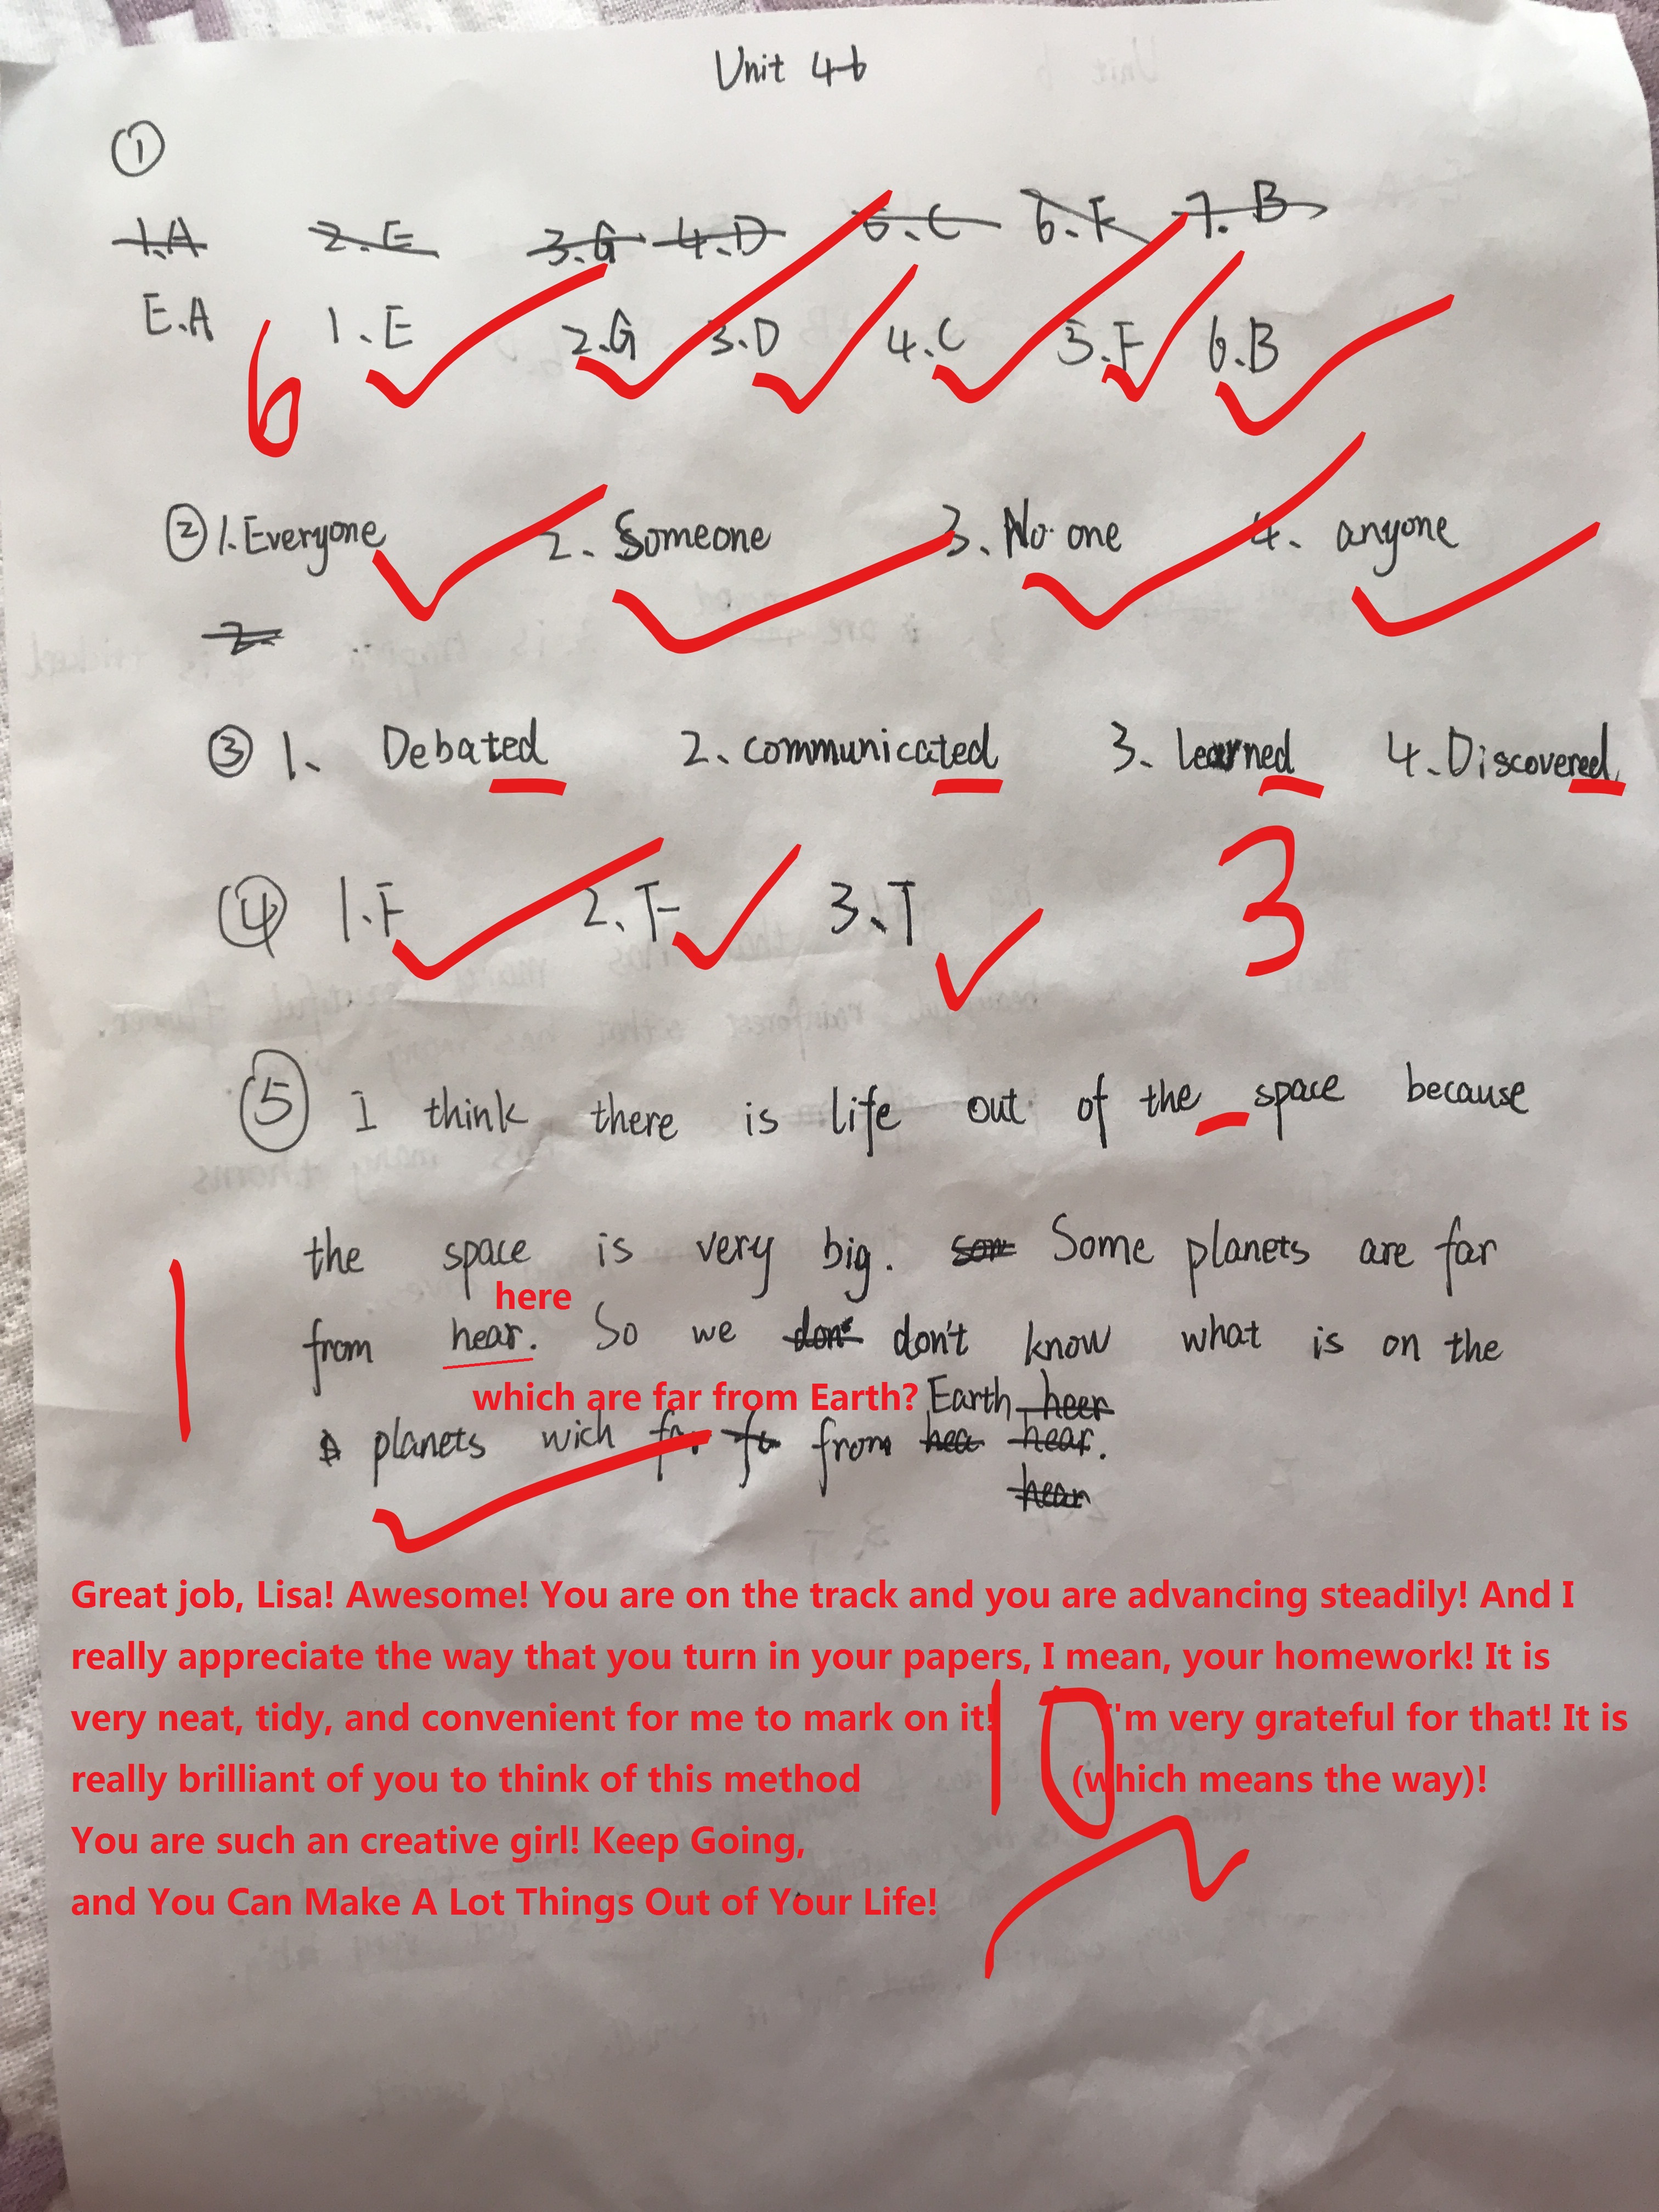 Unit 4-6
①
1.A 2.E 3.G 4.D 5.C 6.F 7.B
E.A 1.E 2.G 3.D 4.C 5.F 6.B
6
② 1.Everyone 2. Someone 3. No one 4. anyone
2.
③ 1. Debated 2. communicated 3. learned 4. Discovered
④ 1.F 2.F 3.T
3
⑤ I think there is life out of the space because
the space is very big. som Some planets are far
1
here
from hear. So we don' don't know what is on the
which are far from Earth? Earth heer
planets wich far from hea hear.
hear
Great job, Lisa! Awesome! You are on the track and you are advancing steadily! And I
really appreciate the way that you turn in your papers, I mean, your homework! It is
very neat, tidy, and convenient for me to mark on it! I'm very grateful for that! It is
10
really brilliant of you to think of this method (which means the way)!
You are such an creative girl! Keep Going,
and You Can Make A Lot Things Out of Your Life!